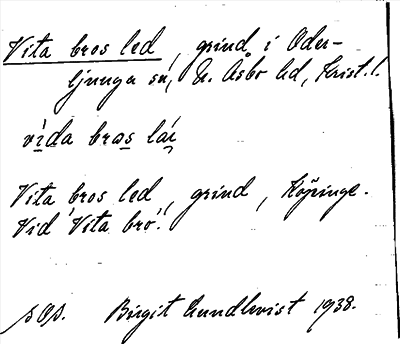 Vita bros led, grind i Oder-
ljunga sn, N. Åsbo hd, Krist. l.
vìda bras láı
Vita bros led, grind, Köpinge.
Vid 'Vita bro'.
sOs. Birgit Lundkvist 1938.